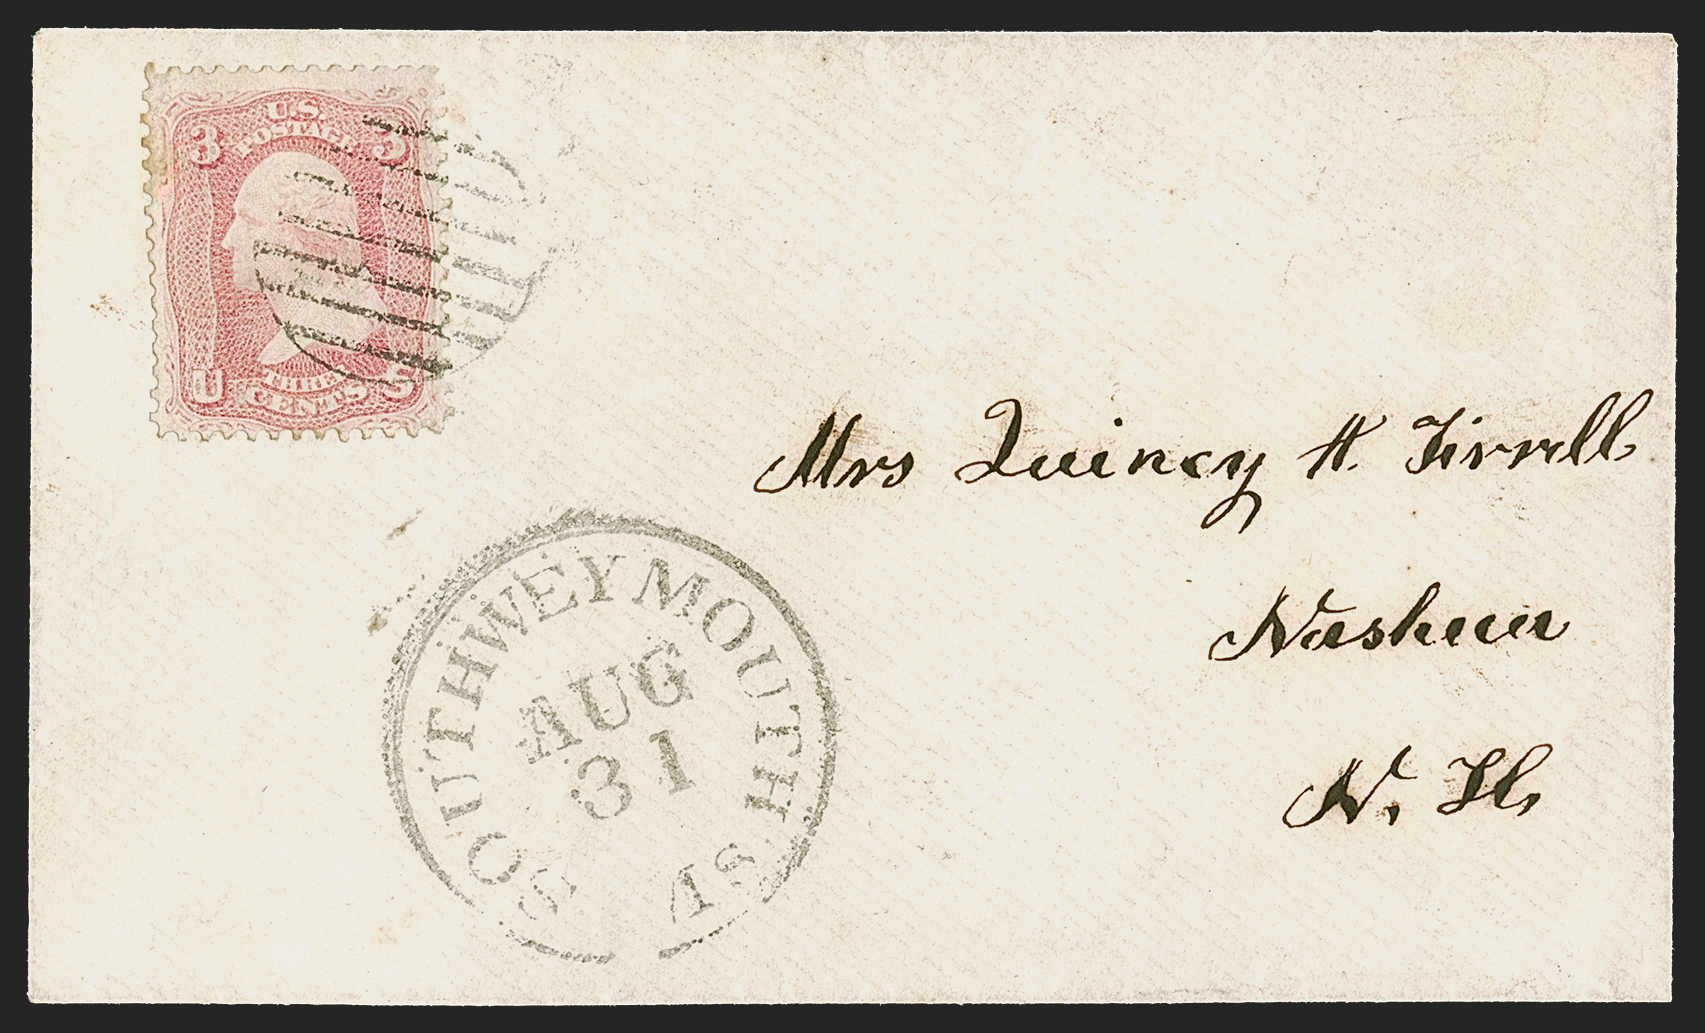 U.S.
POSTAGE
3 3
THREE
CENTS
U S
Mrs Quincy H. Tirrell
Nashua
N. H.
SOUTH WEYMOUTH
AUG
31